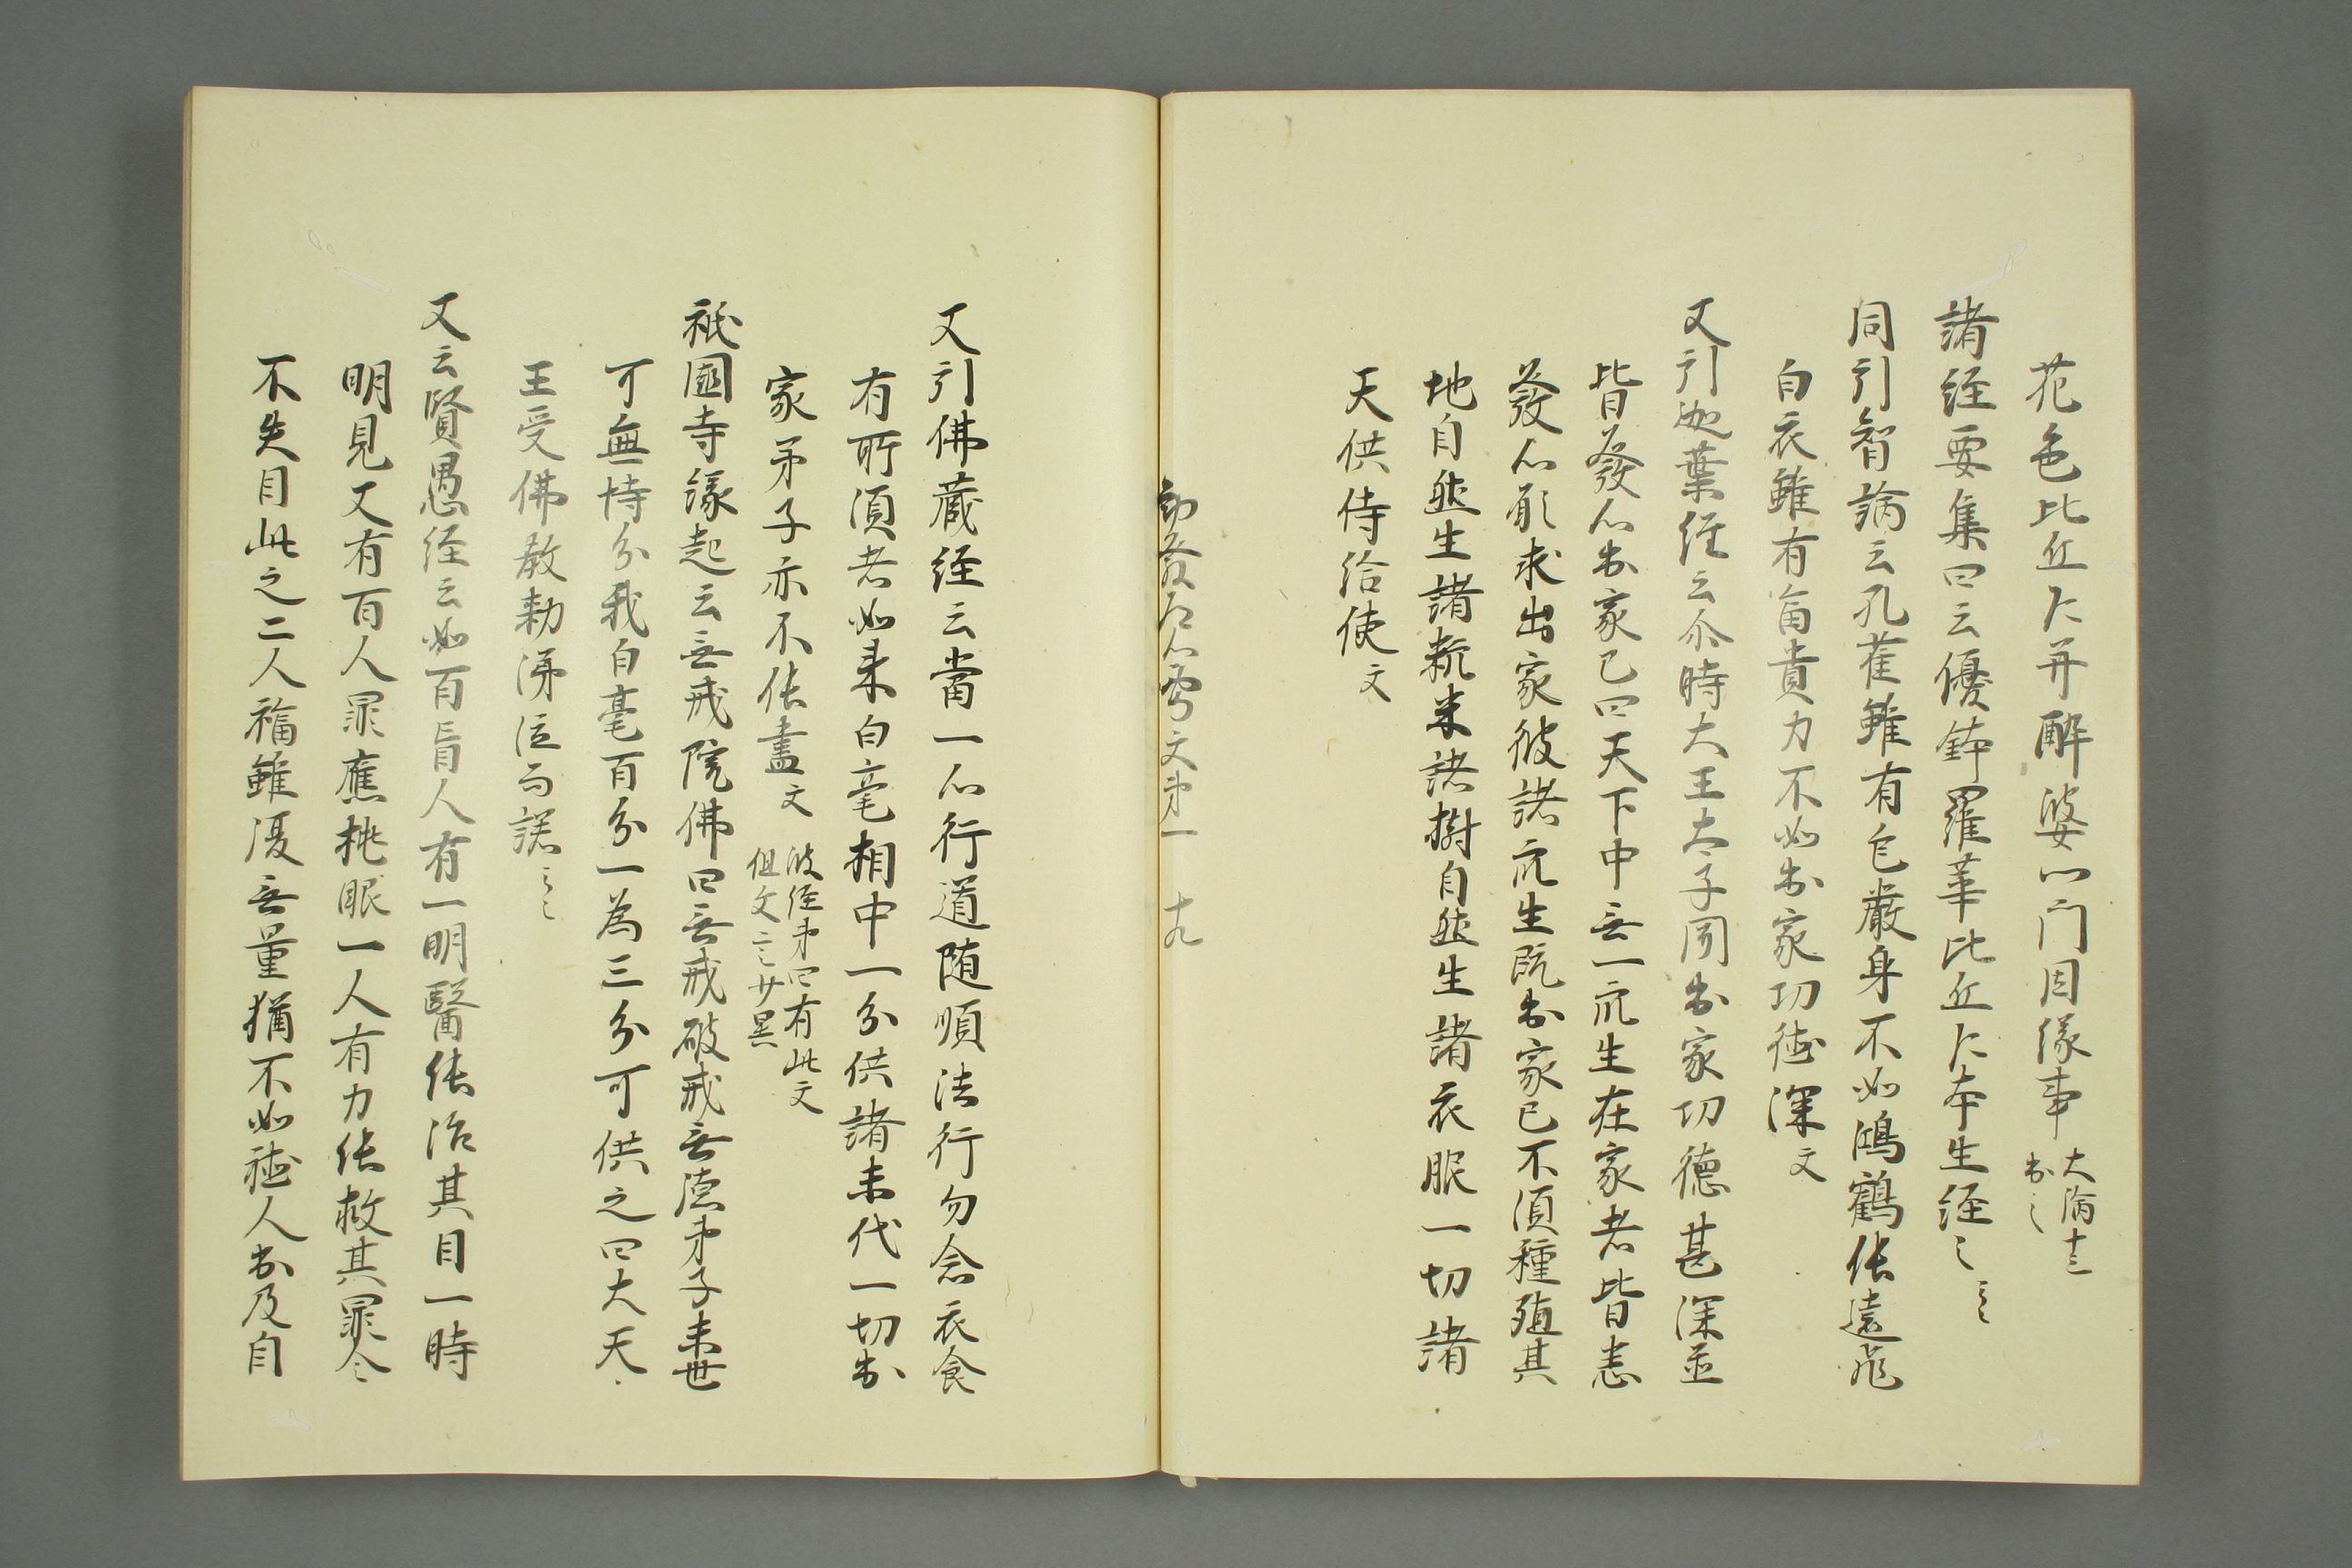 花色比丘尼并酔婆門因縁事 大論十三出之
諸経要集四云優鉢羅華比丘尼本生経云云
同引智論云孔雀雖有色嚴身不如鴻鶴能遠飛
白衣雖有冨貴力不如出家功徳深文
又引迦葉経云尒時大王太子聞出家功徳甚深並
皆發心出家已四天下中无一衆生在家者皆悉
發心願求出家彼諸衆生既出家已不須種殖其
地自然生諸粳米諸樹自然生諸衣服一切諸
天供侍給使文
勸發 心 文第一 十九
又引佛蔵経云當一心行道随順法行勿念衣食
有所須者如来白毫相中一分供諸末代一切出
家弟子亦不能盡文 彼経第四有此文但文言少異
祇園寺縁起云无戒院佛曰无戒破戒无徳弟子来世
可無恃分我白毫百分一為三分可供之四大天
王受佛教勅涕泣而諾云云
又云賢愚経云如百盲人有一明醫能治其目一時
明見又有百人罪應挑眼一人有力能救其罪令
不失目此之二人福雖復无量猶不如聴人出及自